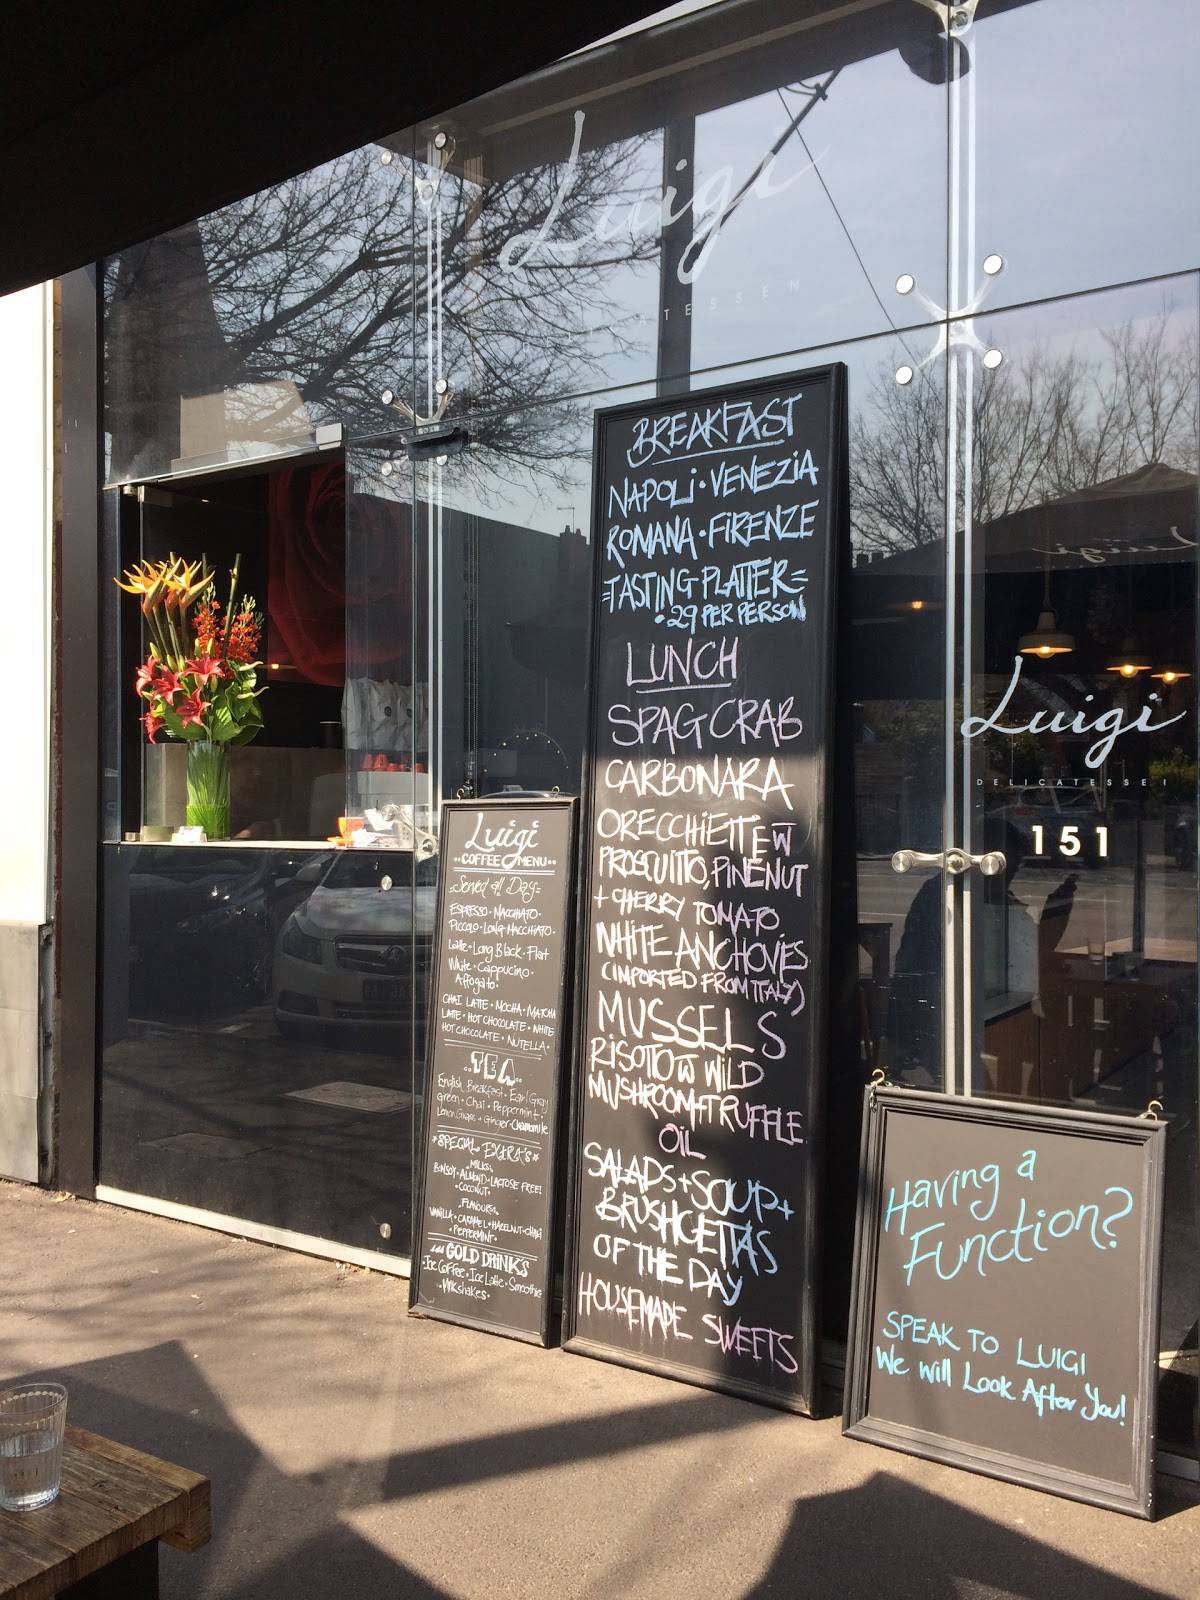 Luigi
BREAKFAST
NAPOLI • VENEZIA
ROMANA • FIRENZE
=TASTING PLATTER=
• 29 PER PERSON
LUNCH
SPAG CRAB
CARBONARA
ORECCHIETTE W
PROSCUITTO, PINENUT
+ CHERRY TOMATO
WHITE ANCHOVIES
(IMPORTED FROM ITALY)
MUSSELS
RISOTTO W WILD
MUSHROOM + TRUFFLE
OIL
SALADS + SOUP +
BRUSHCETTAS
OF THE DAY
HOUSEMADE SWEETS
Luigi
••COFFEE MENU••
-Served all Day-
ESPRESSO • MACCHIATO •
PICCOLO • LONG MACCHIATO •
Latte • Long Black • Flat
White • Cappucino •
Affogato •
CHAI LATTE • MOCHA • MATCHA
LATTE • HOT CHOCOLATE • WHITE
HOT CHOCOLATE • NUTELLA •
..TEA..
English Breakfast • Earl Gray
Green • Chai • Peppermint •
Lemon Grass + Ginger • Chamomile
*SPECIAL EXTRA'S*
MILKS:
BONSOY • ALMOND • LACTOSE FREE!
• COCONUT •
FLAVOURS:
VANILLA • CARAMEL • HAZELNUT • CHAI
• PEPPERMINT •
COLD DRINKS
Ice Coffee • Ice Latte • Smoothie
• Milkshakes •
Luigi
DELICATESSE
151
Having a
Function?
SPEAK TO LUIGI
We will Look After You!